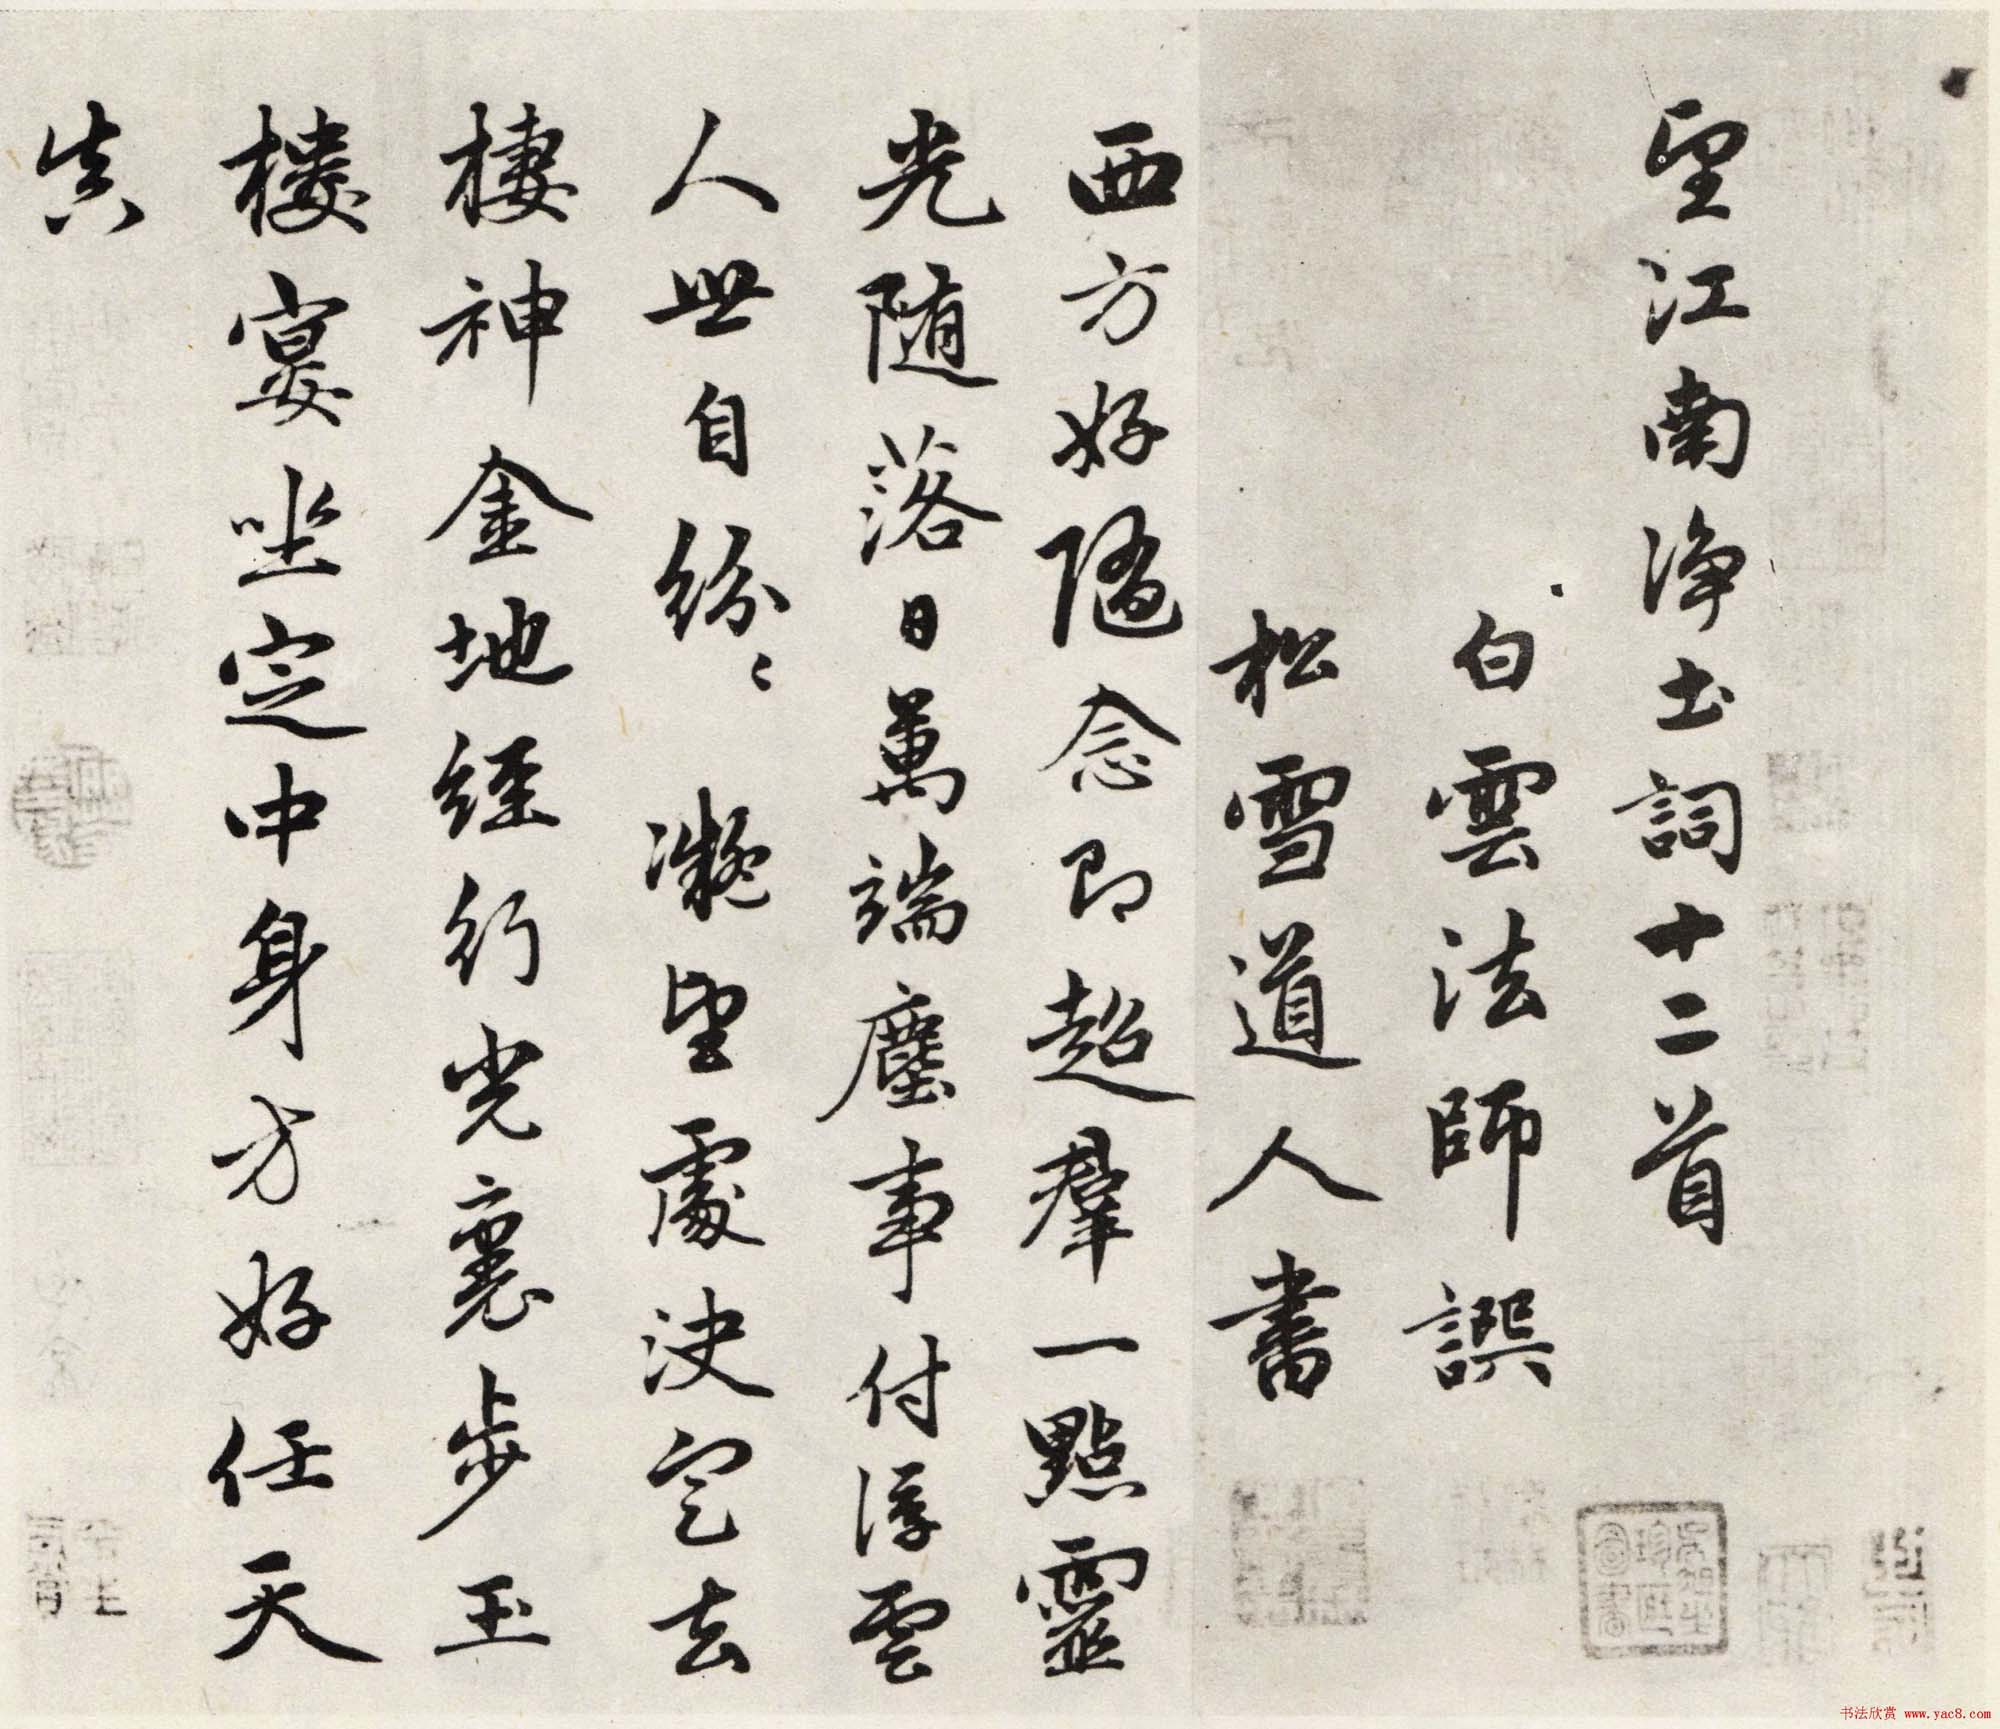 望江南淨土詞十二首
白雲法師譔
松雪道人書
西方好隨念即超羣一點靈
光随落日萬端塵事付浮雲
人世自紛〻凝望處決定去
棲神金地經行光裏步玉
樓宴坐定中身方好任天
真
书法欣赏 www.yac8.com